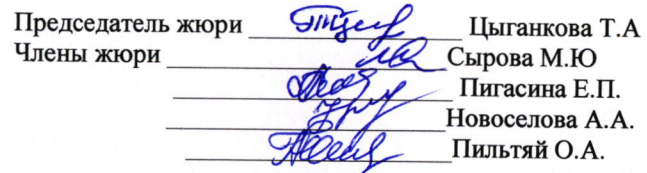 Председатель жюри Цыганкова Т.А
Члены жюри Сырова М.Ю
Пигасина Е.П.
Новоселова А.А.
Пильтяй О.А.